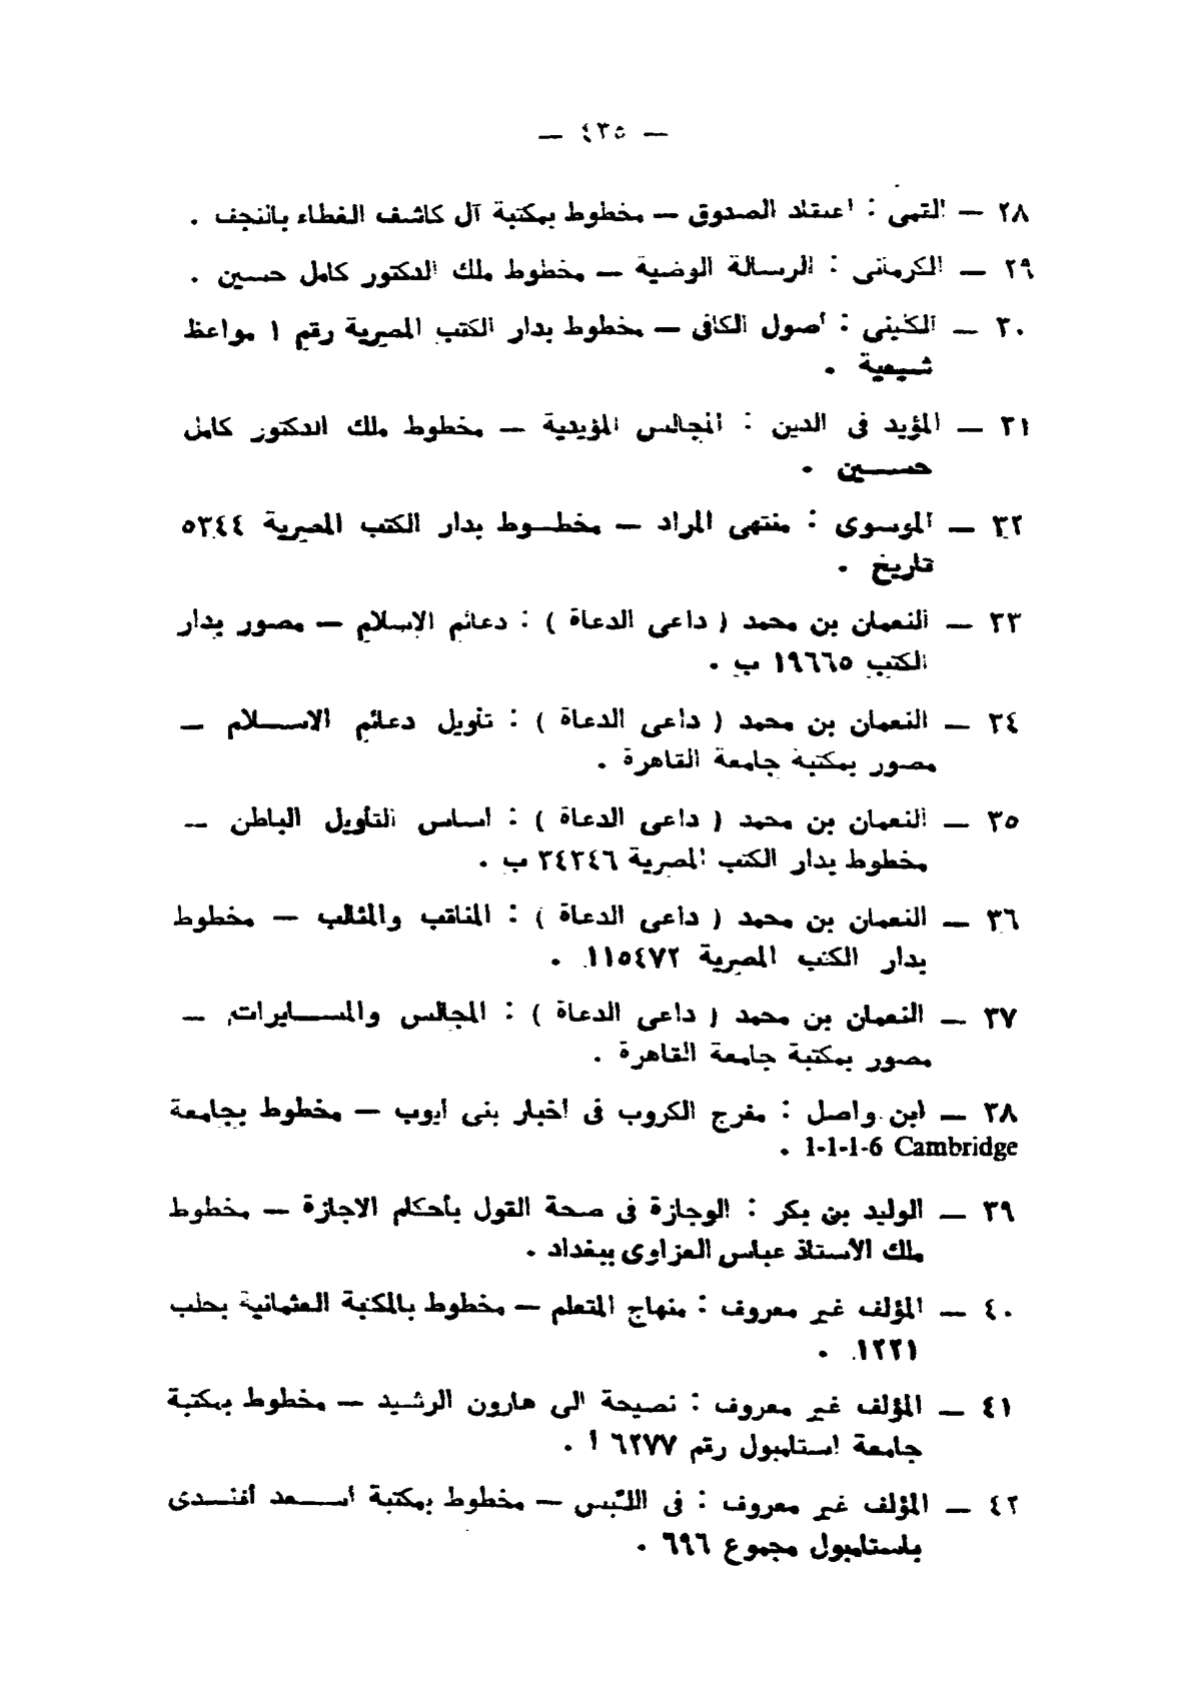 — ٤٣٥ —
٢٨ — القمى : اعتقاد الصدوق — مخطوط بمكتبة آل كاشف الغطاء بالنجف .
٢٩ — الكرمانى : الرسالة الوضية — مخطوط ملك الدكتور كامل حسين .
٣٠ — الكلينى : أصول الكافى — مخطوط بدار الكتب المصرية رقم ١ مواعظ
شيعية .
٣١ — المؤيد فى الدين : المجالس المؤيدية — مخطوط ملك الدكتور كامل
حسين .
٣٢ — الموسوى : منتهى المراد — مخطوط بدار الكتب المصرية ٥٣٤٤
تاريخ .
٣٣ — النعمان بن محمد ( داعى الدعاة ) : دعائم الإسلام — مصور بدار
الكتب ١٩٦٦٥ ب .
٣٤ — النعمان بن محمد ( داعى الدعاة ) : تأويل دعائم الاسلام —
مصور بمكتبة جامعة القاهرة .
٣٥ — النعمان بن محمد ( داعى الدعاة ) : اساس التأويل الباطن —
مخطوط بدار الكتب المصرية ٣٤٣٤٦ ب .
٣٦ — النعمان بن محمد ( داعى الدعاة ) : المناقب والمثالب — مخطوط
بدار الكتب المصرية ١١٥٤٧٢ .
٣٧ — النعمان بن محمد ( داعى الدعاة ) : المجالس والمسايرات —
مصور بمكتبة جامعة القاهرة .
٣٨ — ابن واصل : مفرج الكروب فى اخبار بنى ايوب — مخطوط بجامعة
1-1-1-6 Cambridge .
٣٩ — الوليد بن بكر : الوجازة فى صحة القول بأحكام الاجازة — مخطوط
ملك الأستاذ عباس العزاوى ببغداد .
٤٠ — المؤلف غير معروف : منهاج المتعلم — مخطوط بالمكتبة العثمانية بحلب
١٢٢١ .
٤١ — المؤلف غير معروف : نصيحة الى هارون الرشيد — مخطوط بمكتبة
جامعة استامبول رقم ٦٢٧٧ أ .
٤٢ — المؤلف غير معروف : فى اللبس — مخطوط بمكتبة أسعد أفندى
باستامبول مجموع ٦٩٦ .